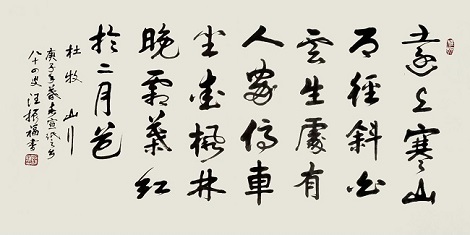 遠上寒山
石徑斜白
雲生處有
人家停車
坐愛楓林
晚霜葉紅
於二月花
杜牧 山行
庚子年
八十四叟汪振福書